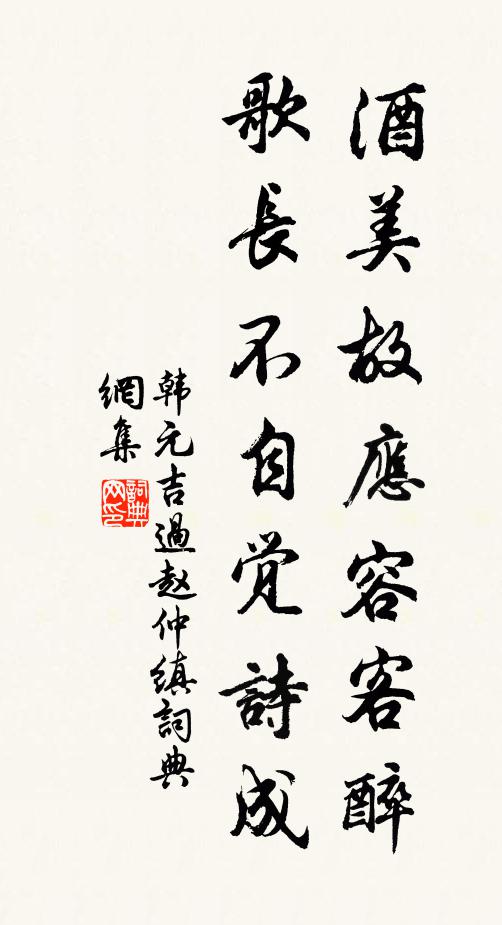 酒美故應容客醉
歌長不自覺詩成
韩元吉過赵仲縝詞典
網集
詞典网印